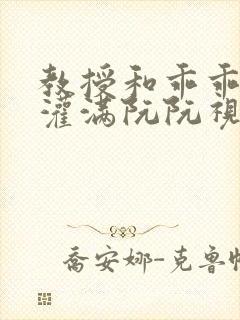 教授和乖乖
灌满阮阮视
乔安娜-克鲁